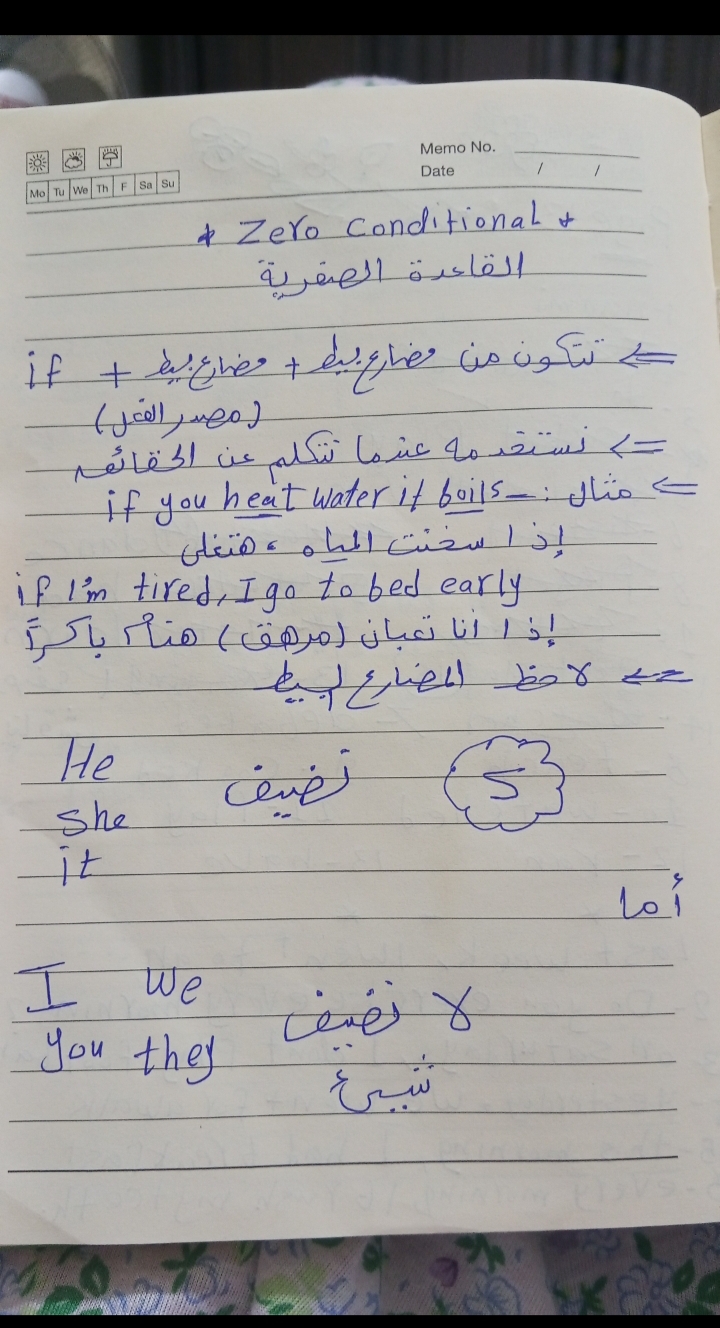 Memo No.
Date / /
Mo Tu We Th F Sa Su
* Zero Conditional *
القاعدة الصفرية
<= تتكون من مضارع بسيط + مضارع بسيط + if
(مصدر الفعل)
=> نستخدمه عندما نتكلم عن الحقائق
<= مثال :- if you heat water it boils
إذا سخنت المياه، هتغلي
if I'm tired, I go to bed early
إذا أنا تعبان (مرهق) هنام باكرًا
<= لاحظ المضارع البسيط
He
she
it
تضيف
S
أما
I we
you they
لا نضيف
شيئ